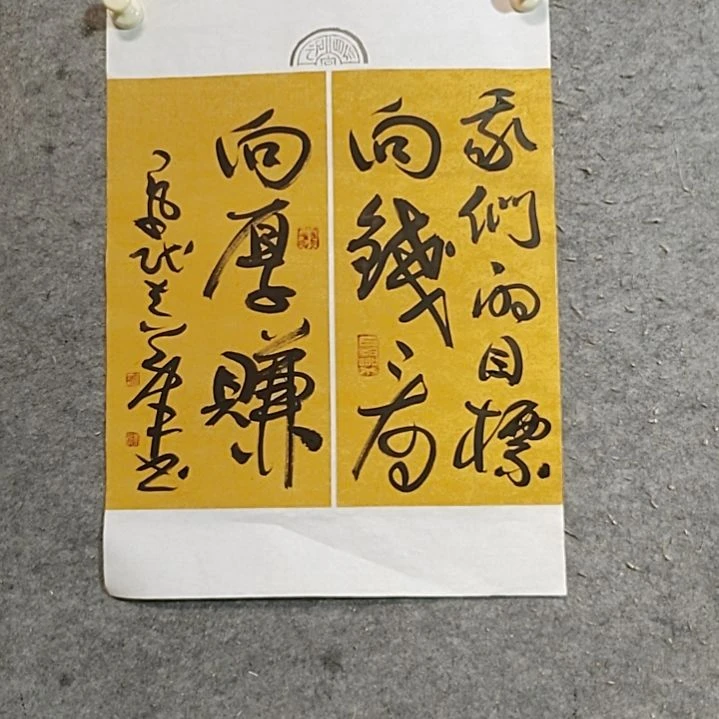 我們的目標
向錢看
向厚賺
書